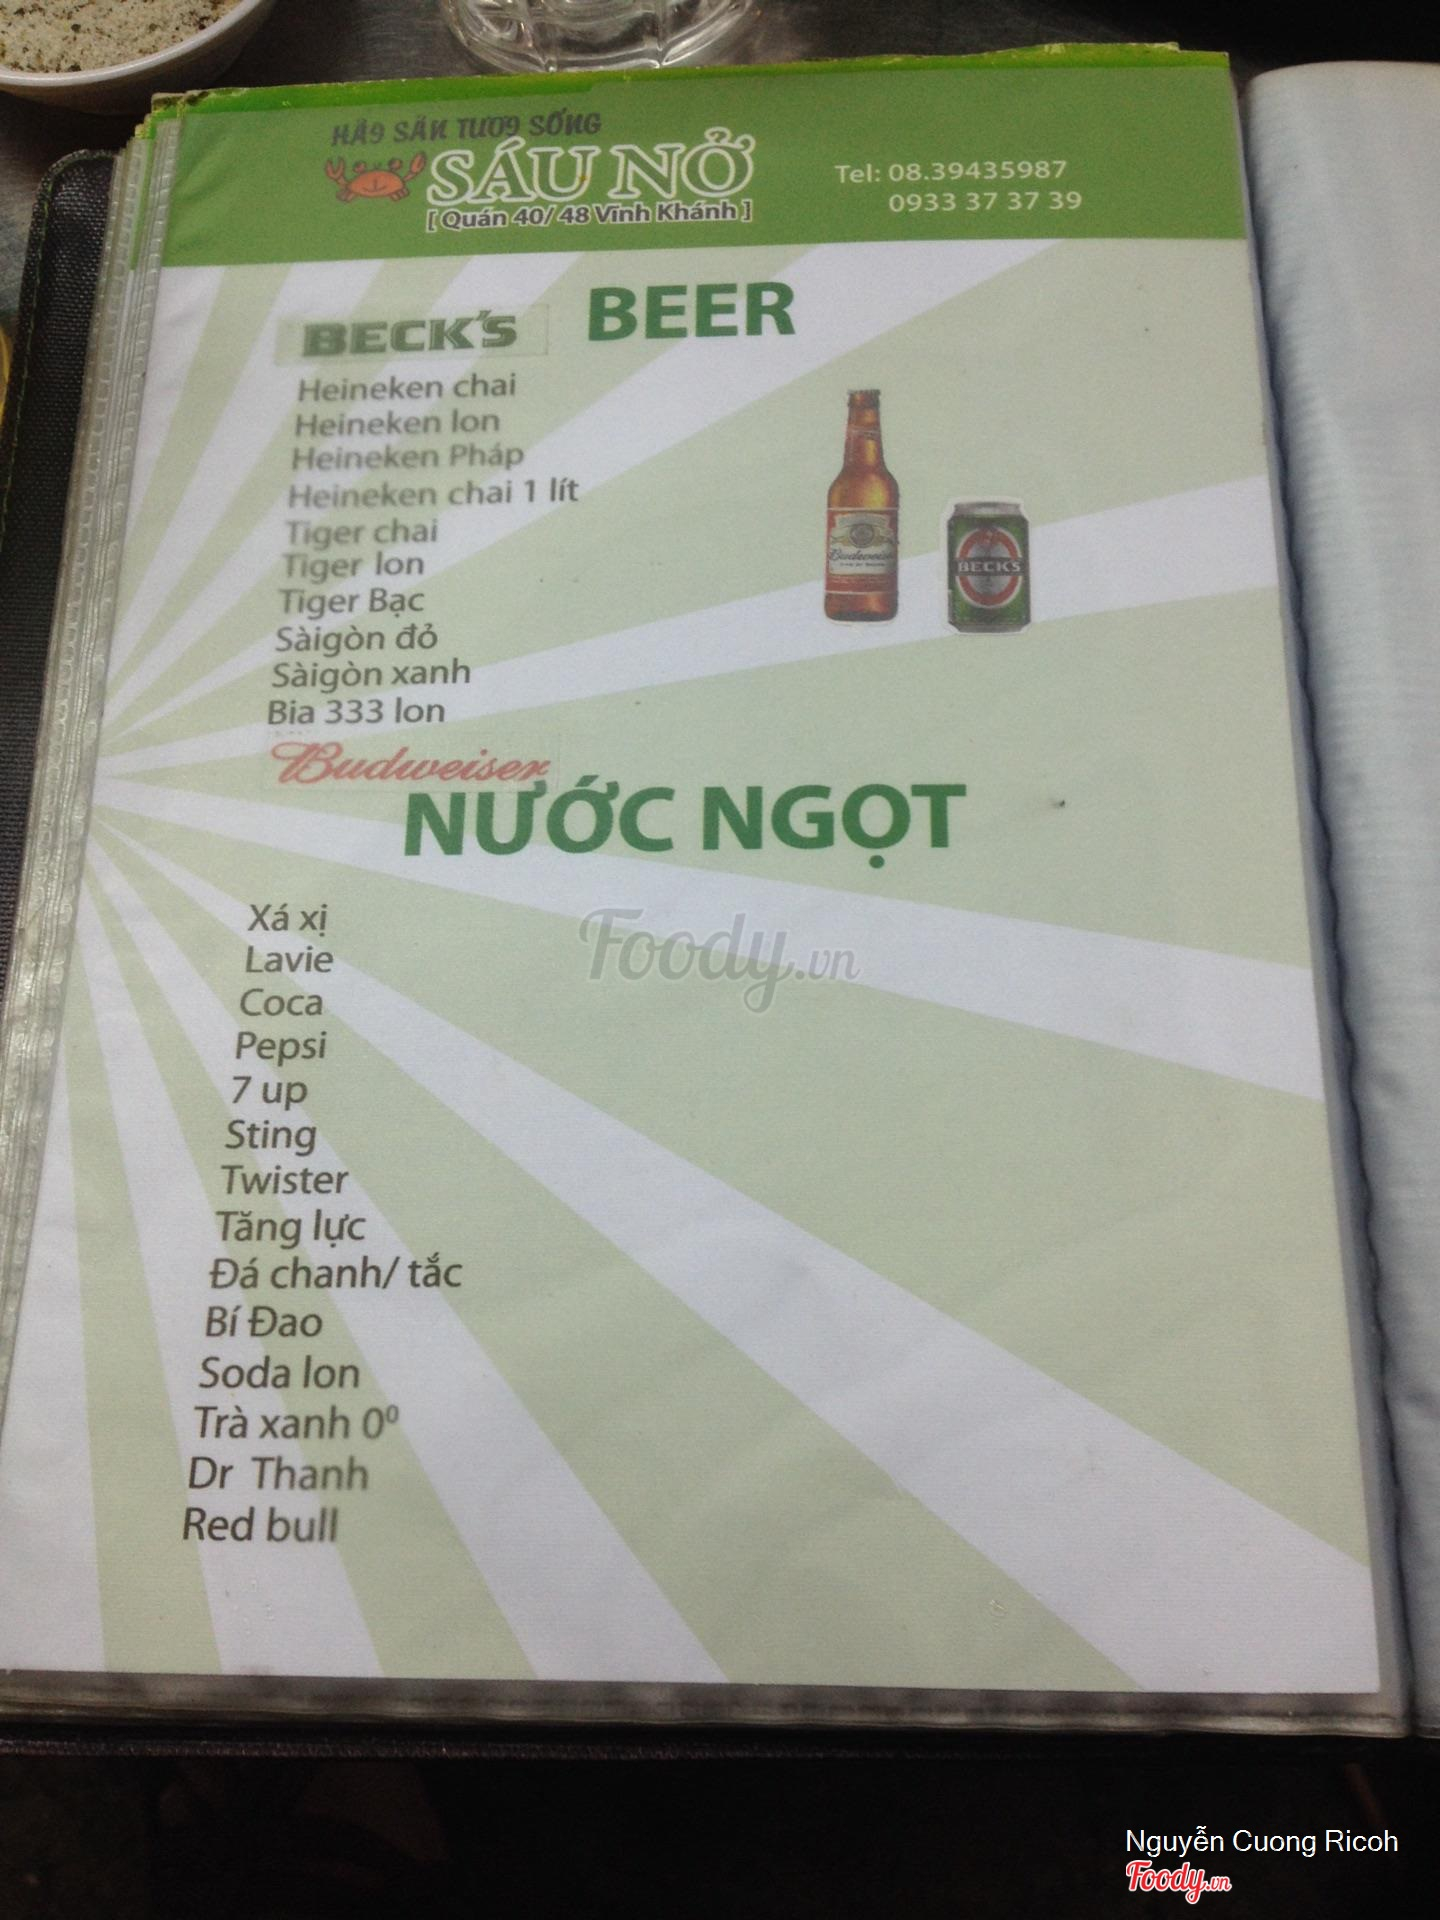 HẢI SẢN TƯƠI SỐNG
SÁU NỞ
[ Quán 40/ 48 Vĩnh Khánh ]
Tel: 08.39435987
0933 37 37 39
BEER
BECK'S
Heineken chai
Heineken lon
Heineken Pháp
Heineken chai 1 lít
Tiger chai
Tiger lon
Tiger Bạc
Sàigòn đỏ
Sàigòn xanh
Bia 333 lon
Budweiser
Budweiser
BECK'S
NƯỚC NGỌT
Xá xị
Lavie
Coca
Pepsi
7 up
Sting
Twister
Tăng lực
Đá chanh/ tắc
Bí Đao
Soda lon
Trà xanh 0⁰
Dr Thanh
Red bull
Foody.vn
Nguyễn Cuong Ricoh
Foody.vn